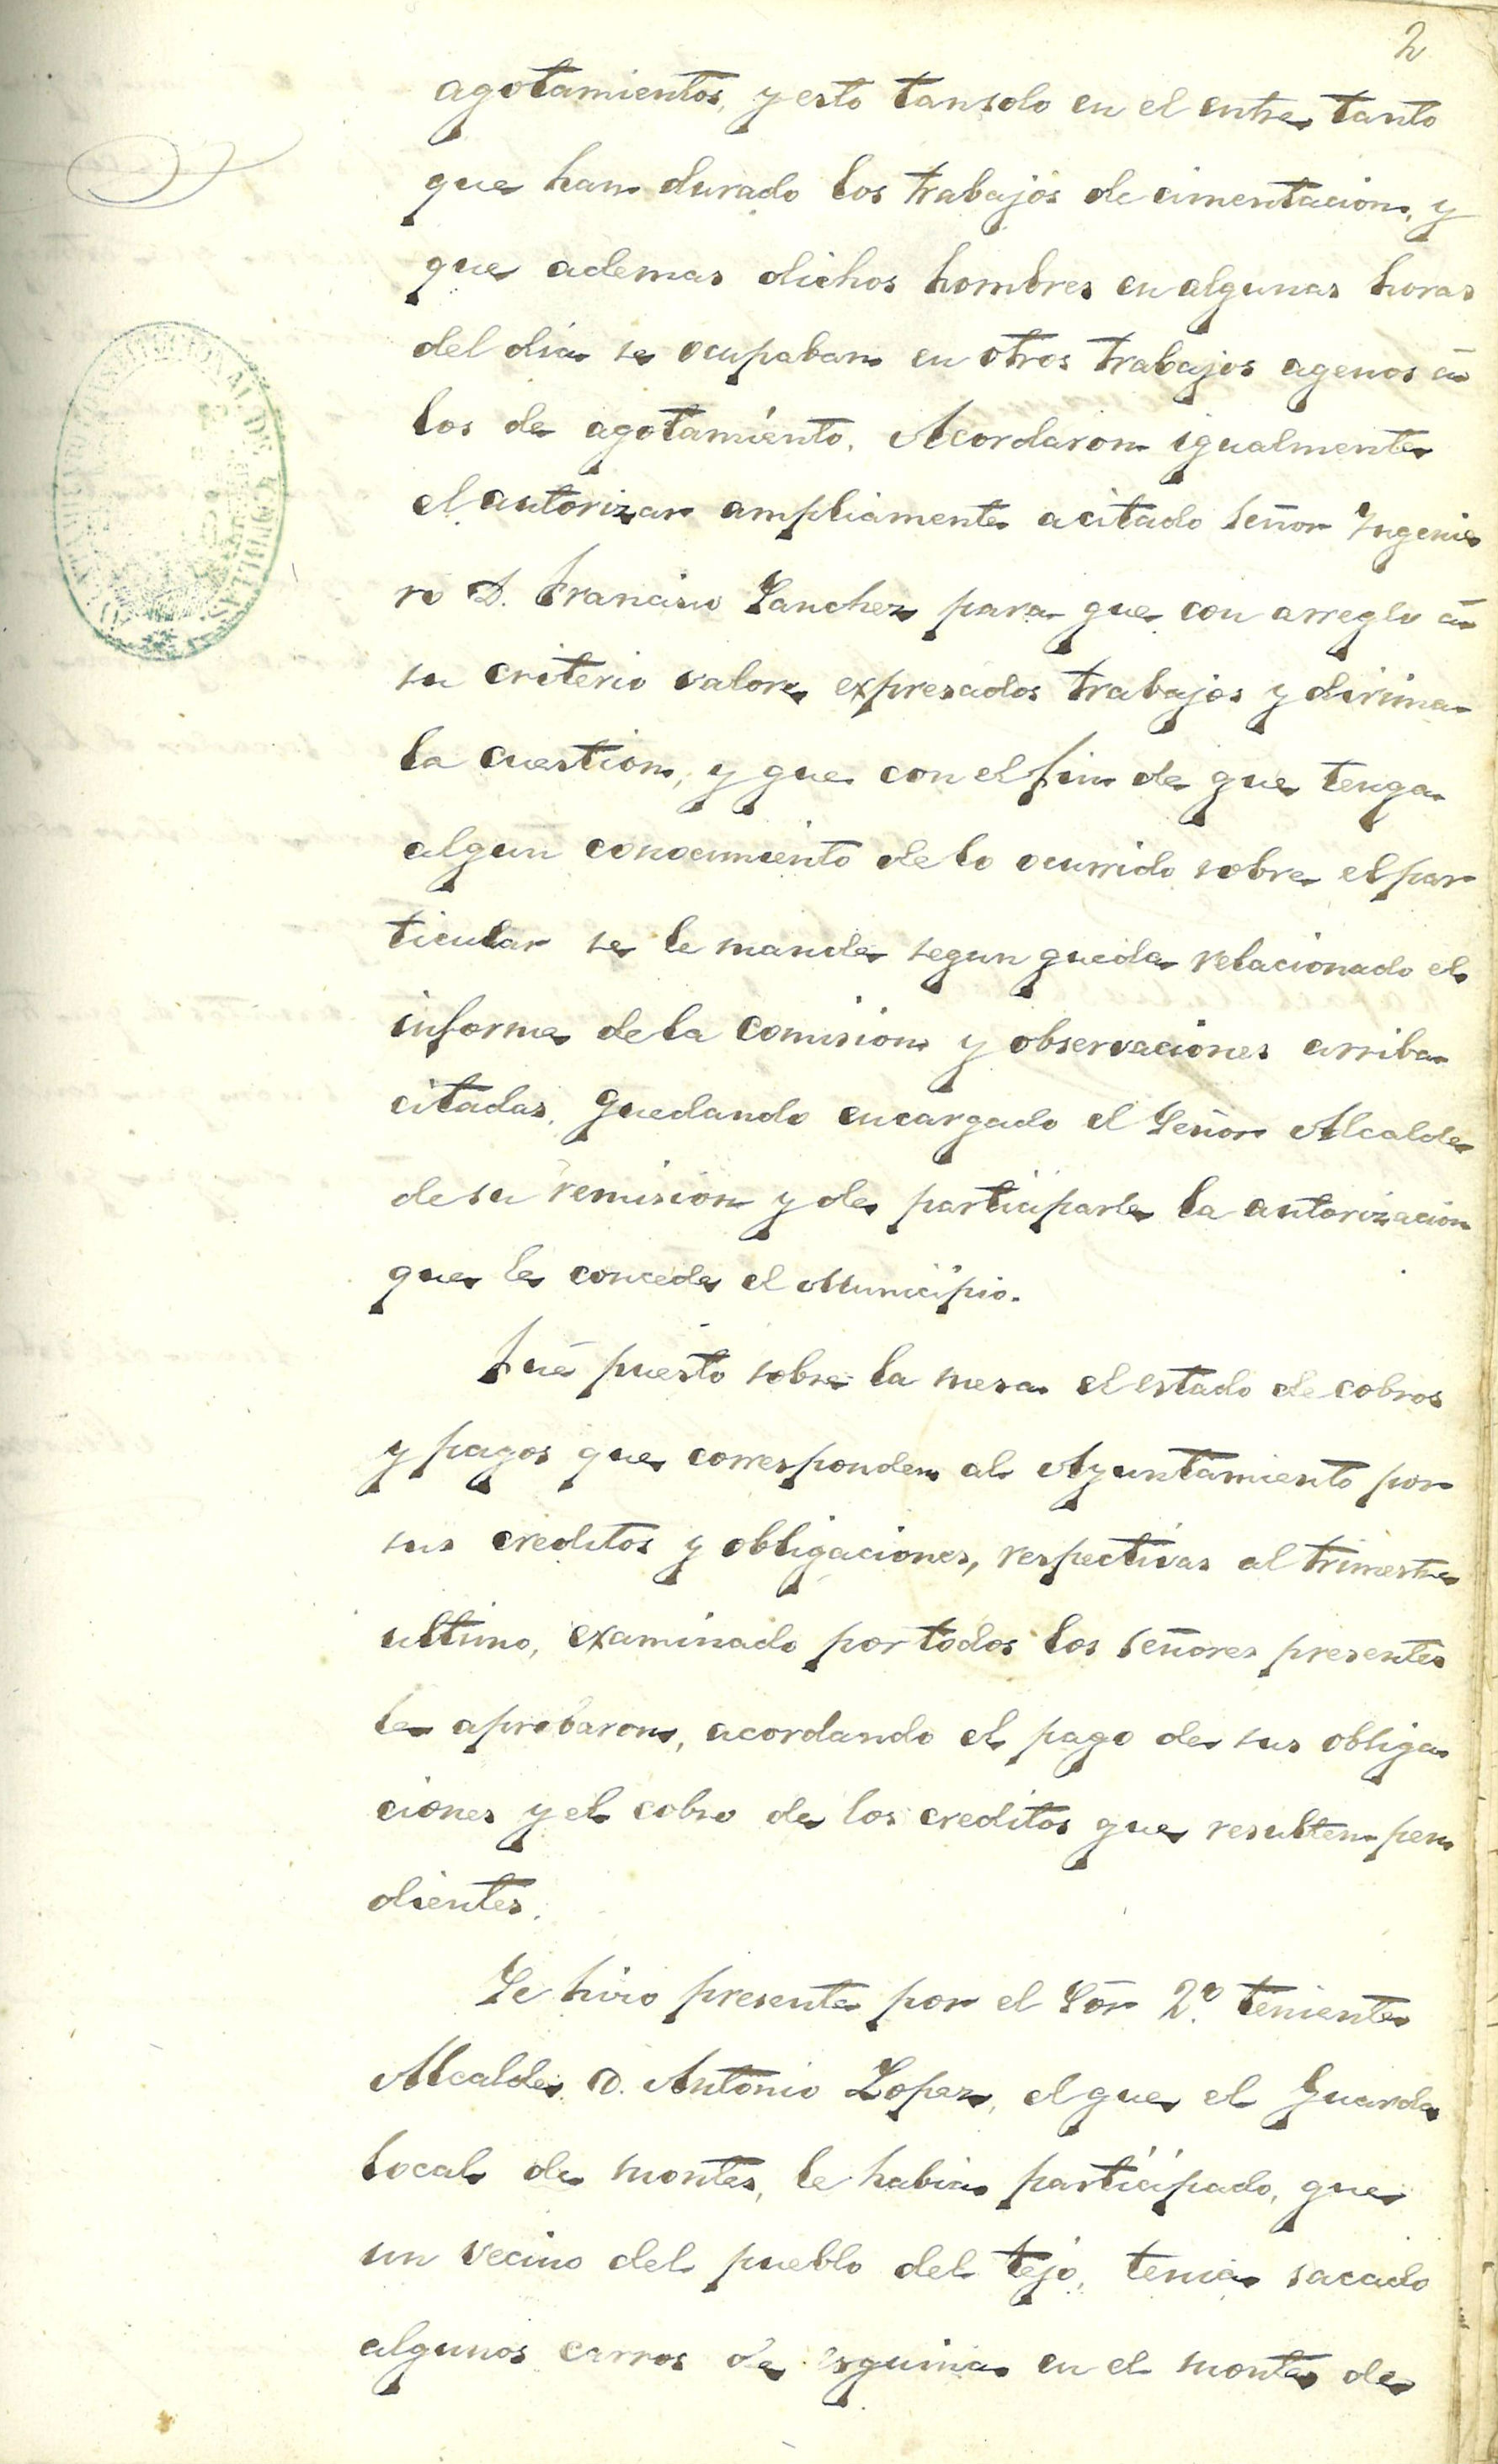 2
agotamientos, y esto tan solo en el entre tanto
que han durado los trabajos de cimentacion, y
que ademas dichos hombres en algunas horas
del dia se ocupaban en otros trabajos agenos á
los de agotamiento. Acordaron igualmente
el autorizar ampliamente a citado Señor Ingenie
ro D. Francisco Sanchez para que con arreglo á
su criterio valore expresados trabajos y dirima
la cuestion, y que con el fin de que tenga
algun conocimiento de lo ocurrido sobre el par
ticular se le mande segun queda relacionado el
informe de la Comision y observaciones arriba
citadas, quedando encargado el Señor Alcalde
de su remision y de participarle la autorizacion
que le concede el Municipio.
Fué puesto sobre la mesa el estado de cobros
y pagos que corresponden al Ayuntamiento por
sus creditos y obligaciones, respectivas al trimestre
ultimo, examinado por todos los Señores presentes
le aprobaron, acordando el pago de sus obliga
ciones y el cobro de los creditos que resulten pen
dientes.
Se hizo presente por el Sōr 2º teniente
Alcalde D. Antonio Lopez, el que el Guarda
local de montes, le habia participado, que
un vecino del pueblo del tejo, tenia sacado
algunos carros de esquina en el monte de
CONSTITUCIONAL DE